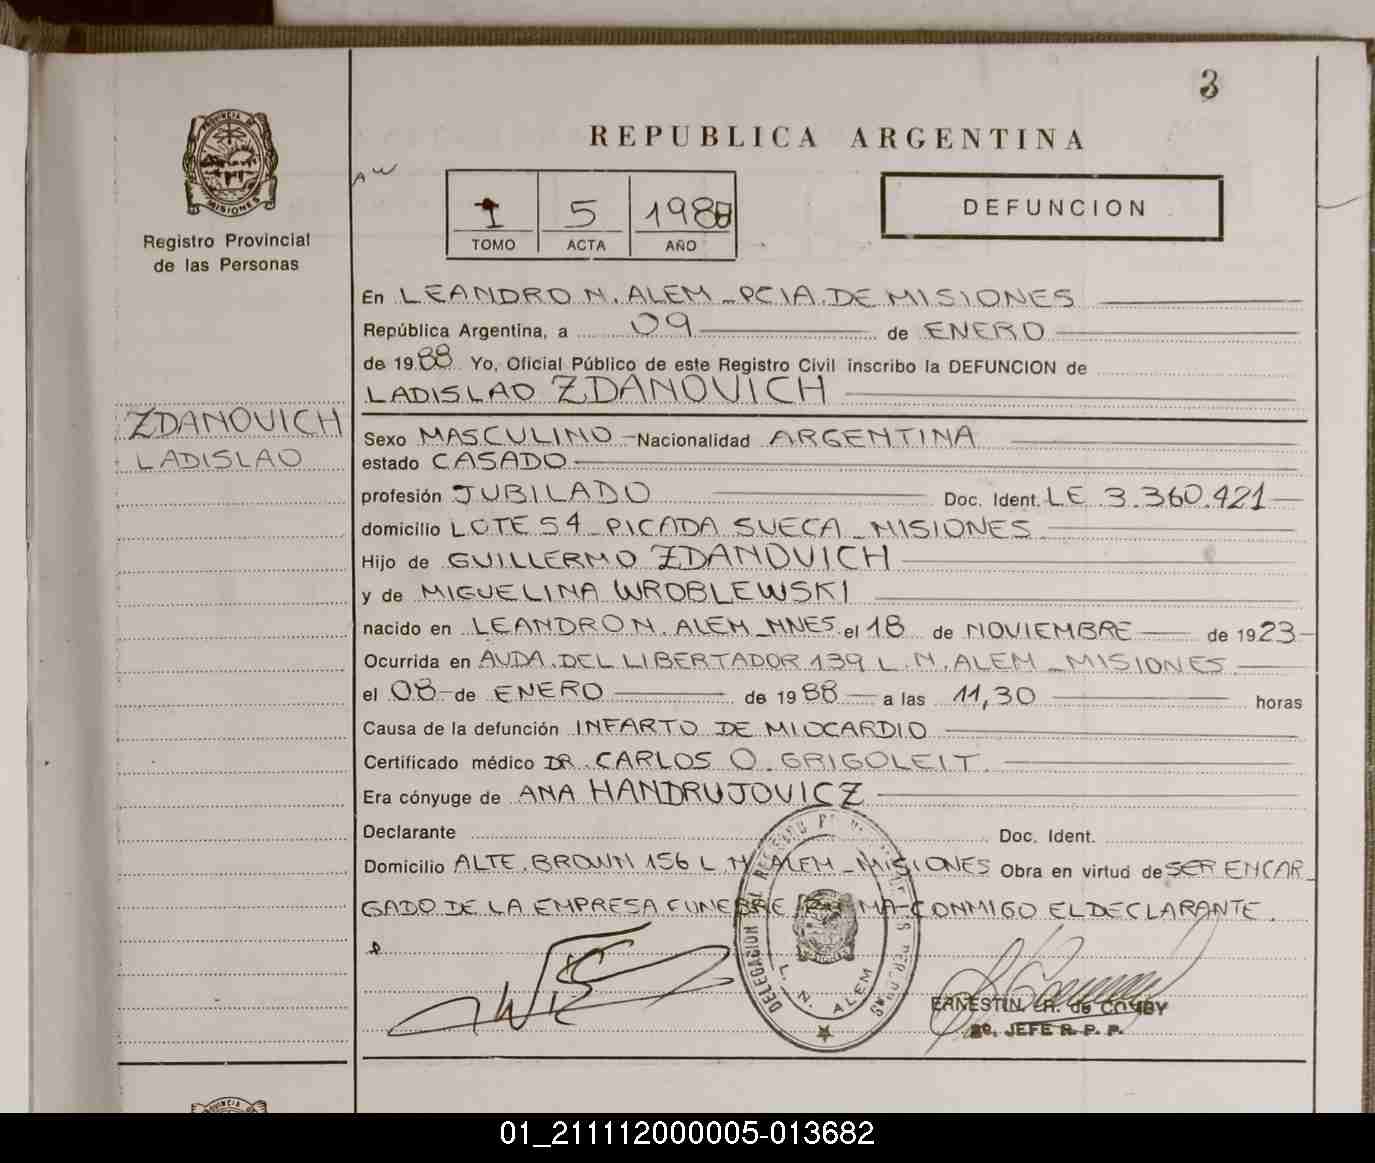 3
PROVINCIA DE
MISIONES
Registro Provincial
de las Personas
REPUBLICA ARGENTINA
1 5 1988
TOMO ACTA AÑO
DEFUNCION
En LEANDRO N. ALEM - PCIA. DE MISIONES
República Argentina, a 09 de ENERO
de 1988 Yo, Oficial Público de este Registro Civil inscribo la DEFUNCION de
LADISLAO ZDANOVICH
ZDANOVICH
LADISLAO
Sexo MASCULINO - Nacionalidad ARGENTINA
estado CASADO
profesión JUBILADO Doc. Ident. LE 3.360.421
domicilio LOTE 54 - PICADA SUECA - MISIONES
Hijo de GUILLERMO ZDANOVICH
y de MIGUELINA WROBLEWSKI
nacido en LEANDRO N. ALEM - MNES. el 18 de NOVIEMBRE de 1923
Ocurrida en AVDA. DEL LIBERTADOR 139 L. N. ALEM - MISIONES
el 08 de ENERO de 1988 a las 11,30 horas
Causa de la defunción INFARTO DE MIOCARDIO
Certificado médico DR. CARLOS O. GRIGOLEIT.
Era cónyuge de ANA HANDRUJOVICZ
Declarante Doc. Ident.
Domicilio ALTE. BROWN 156 L. N. ALEM - MISIONES Obra en virtud de SER ENCAR-
GADO DE LA EMPRESA FUNEBRE FIRMA CONMIGO EL DECLARANTE.
DELEGACION DEL REGISTRO PERSONAS
L. N. ALEM
de
2o. JEFE R. P. P.
PROVINCIA DE
01_211112000005-013682